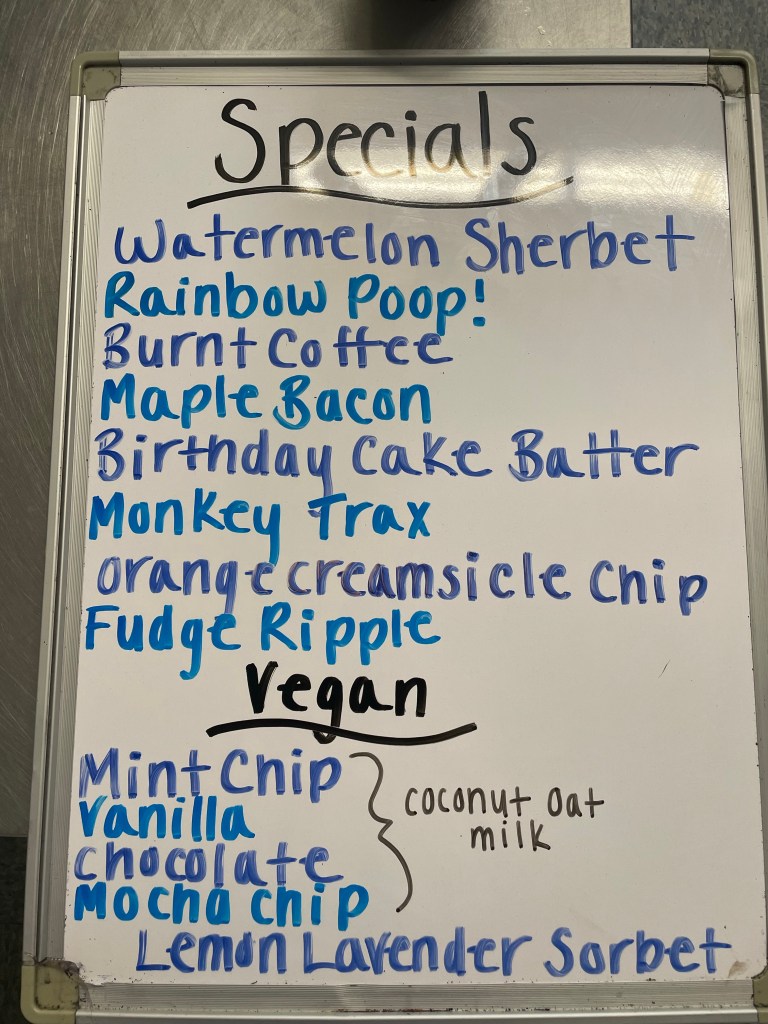 Specials
Watermelon Sherbet
Rainbow Poop!
Burnt Coffee
Maple Bacon
Birthday Cake Batter
Monkey Trax
orange creamsicle chip
Fudge Ripple
Vegan
Mint Chip
Vanilla
chocolate
Mocha chip
coconut oat
milk
Lemon Lavender Sorbet